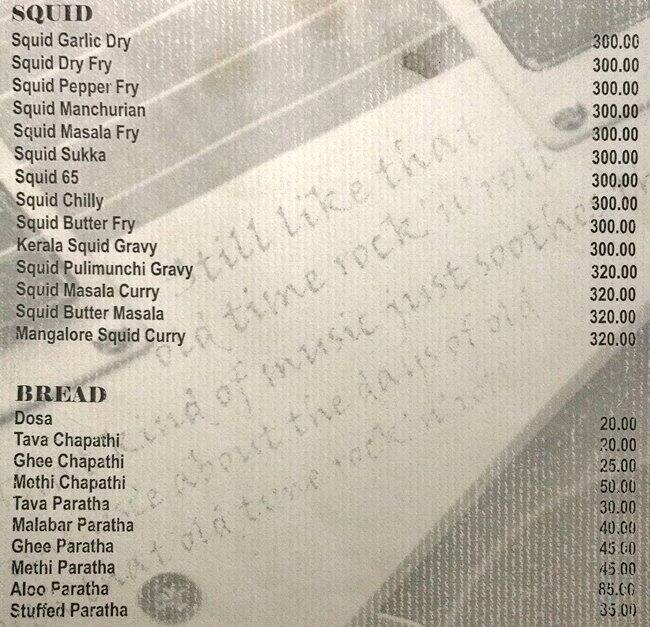 SQUID
Squid Garlic Dry 300.00
Squid Dry Fry 300.00
Squid Pepper Fry 300.00
Squid Manchurian 300.00
Squid Masala Fry 300.00
Squid Sukka 300.00
Squid 65 300.00
Squid Chilly 300.00
Squid Butter Fry 300.00
Kerala Squid Gravy 300.00
Squid Pulimunchi Gravy 320.00
Squid Masala Curry 320.00
Squid Butter Masala 320.00
Mangalore Squid Curry 320.00
BREAD
Dosa 20.00
Tava Chapathi 20.00
Ghee Chapathi 25.00
Methi Chapathi 50.00
Tava Paratha 30.00
Malabar Paratha 40.00
Ghee Paratha 45.00
Methi Paratha 45.00
Aloo Paratha 85.00
Stuffed Paratha 35.00
still like that
old time rock 'n' roll
kind of music just soothe
about the days of old
old time rock 'n'